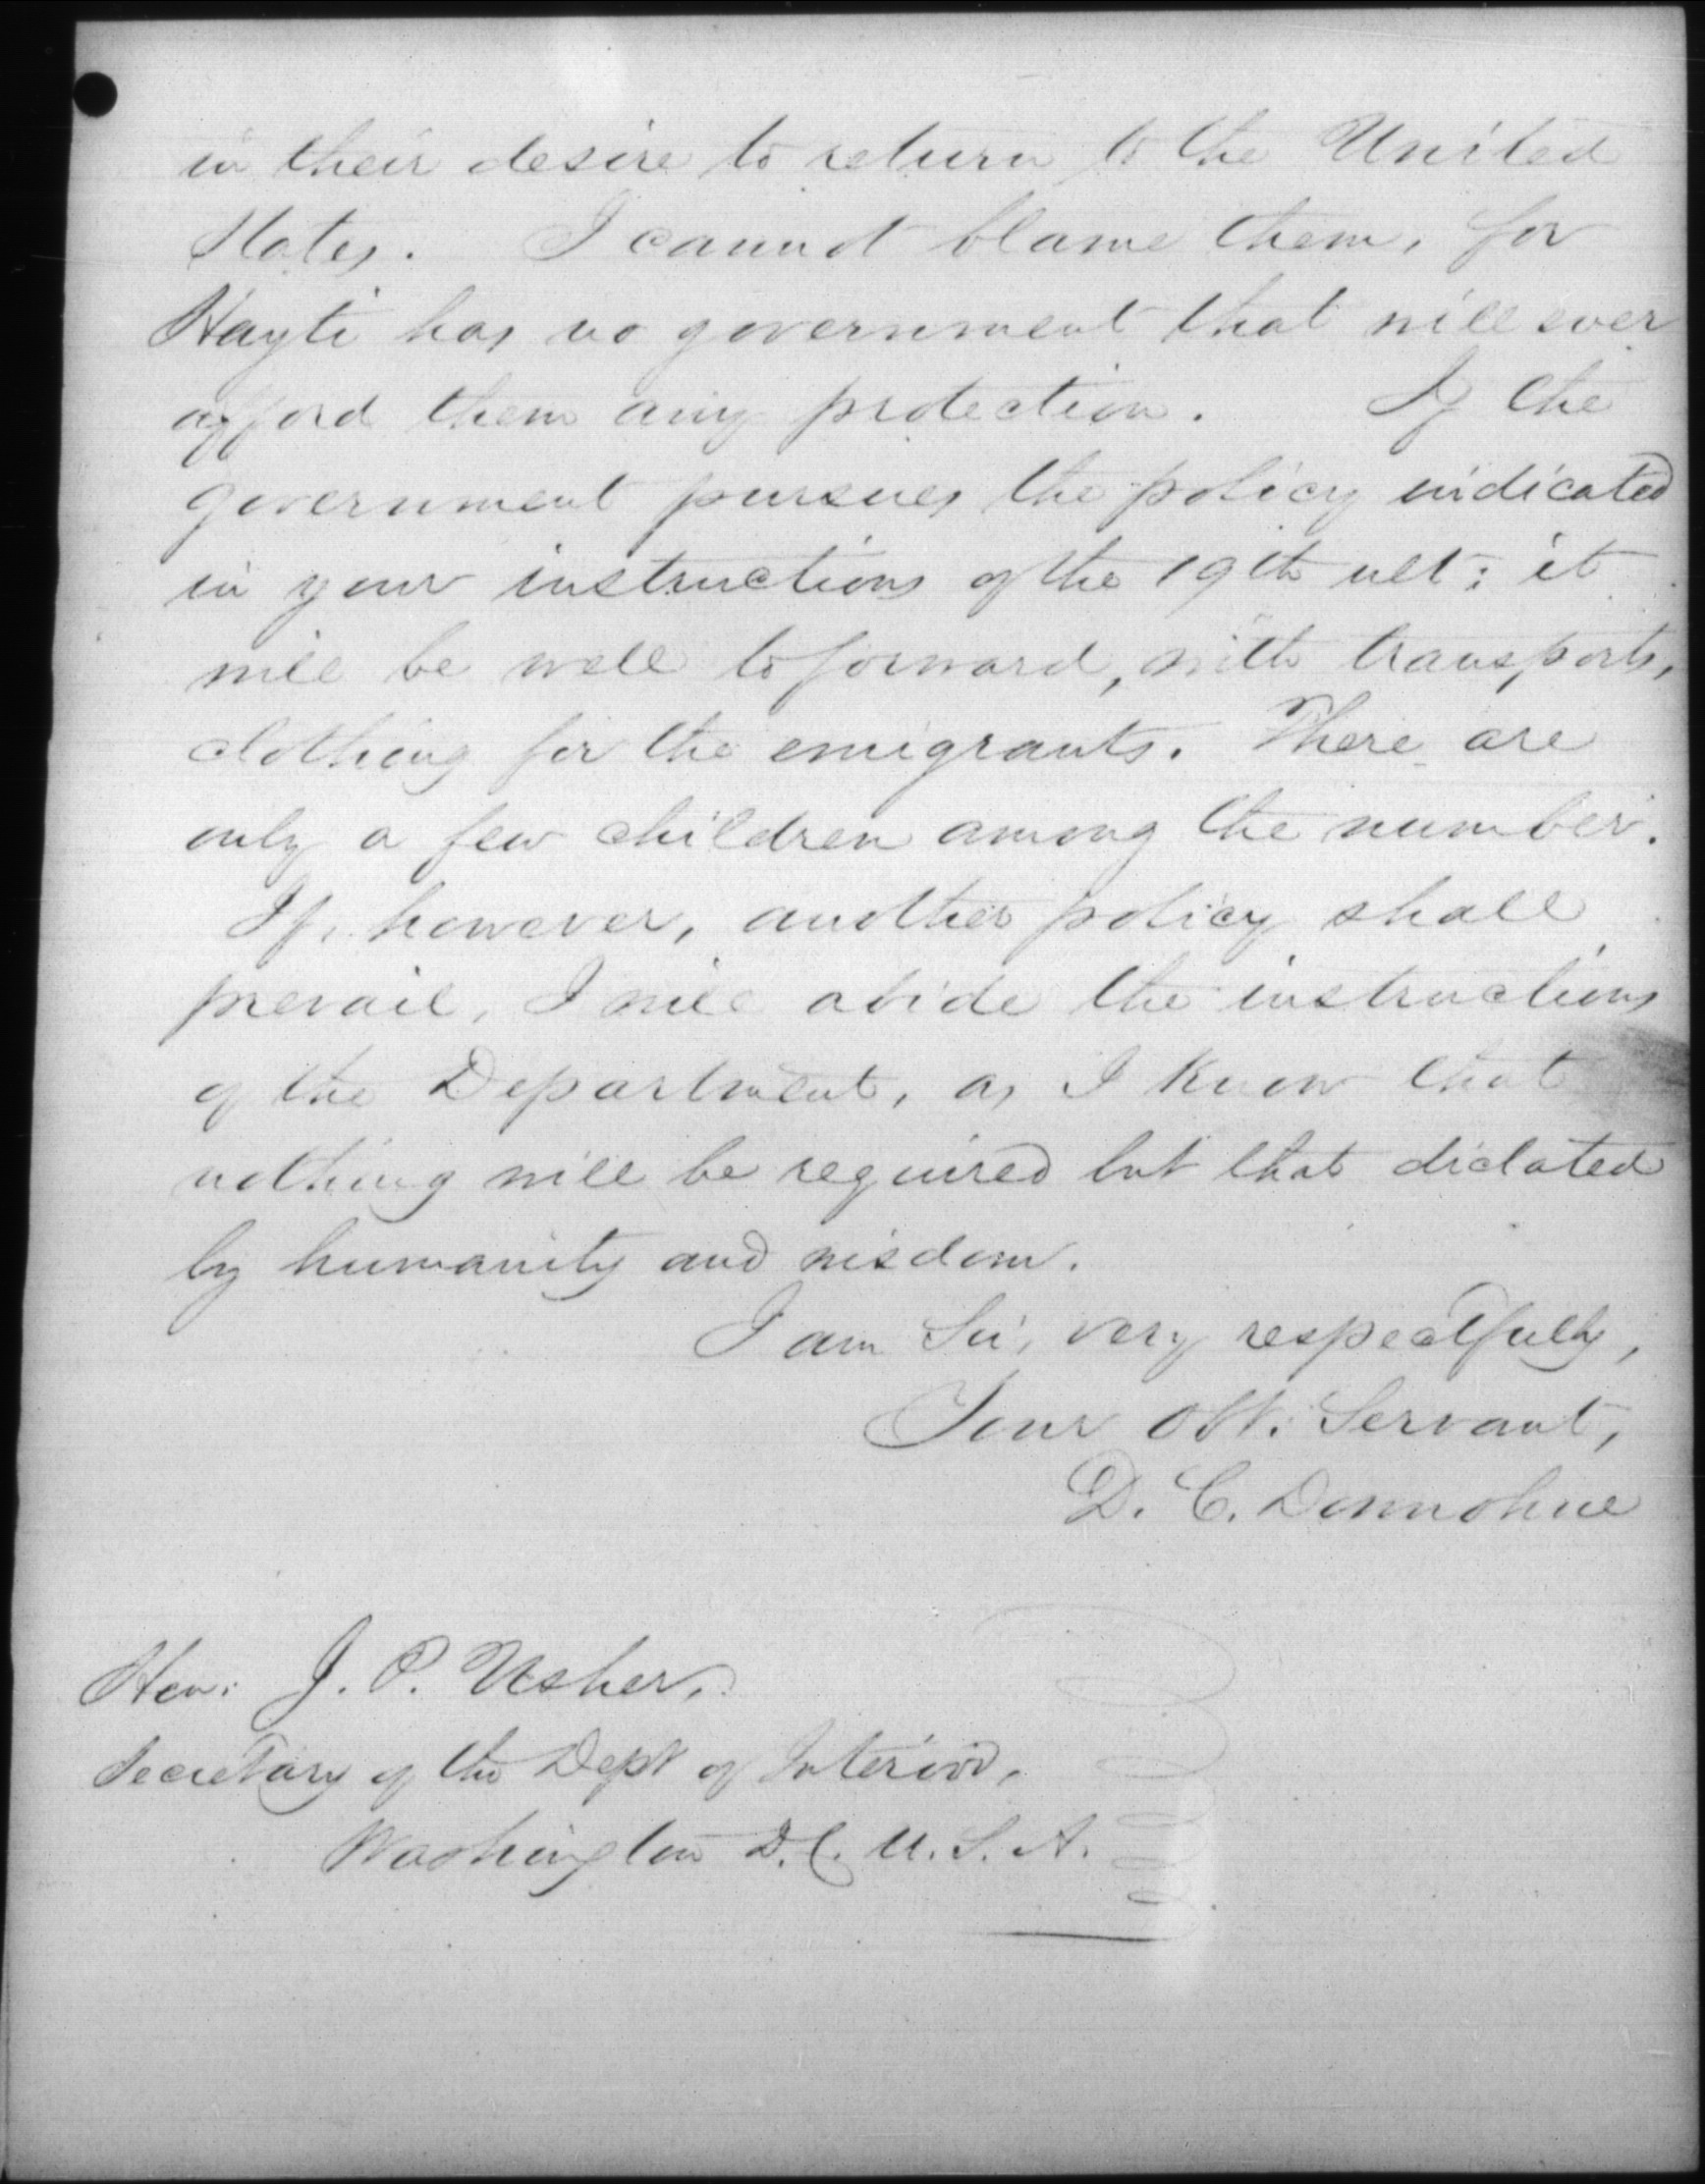 in their desire to return to the United
States. I cannot blame them, for
Hayti has no government that will ever
afford them any protection. If the
government pursues the policy indicated
in your instructions of the 19th ult: it
will be well to forward, with transports,
clothing for the emigrants. There are
only a few children among the number.
If, however, another policy shall
prevail, I will abide the instructions
of the Department, as I know that
nothing will be required but that dictated
by humanity and wisdom.
I am Sir, very respectfully,
Your Obt: Servant,
D. C. Donnohue
Hon: J. P. Usher,
Secretary of the Dept of Interior,
Washington D.C. U.S.A.